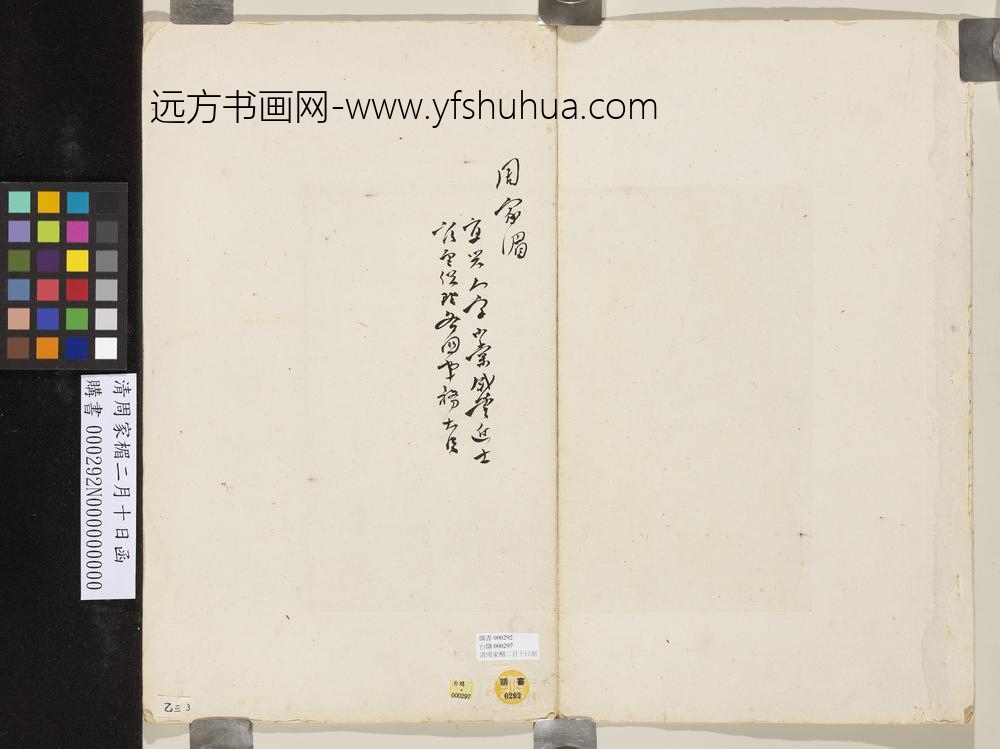 远方书画网-www.yfshuhua.com
周家湄
宜興人字小棠咸豐進士
總理各國事務大臣
清周家楣二月十日函
購書 000292N000000000
購書 000292
台購 000297
清周家楣二月十日函
台購
000297
購書
0292
乙三 3